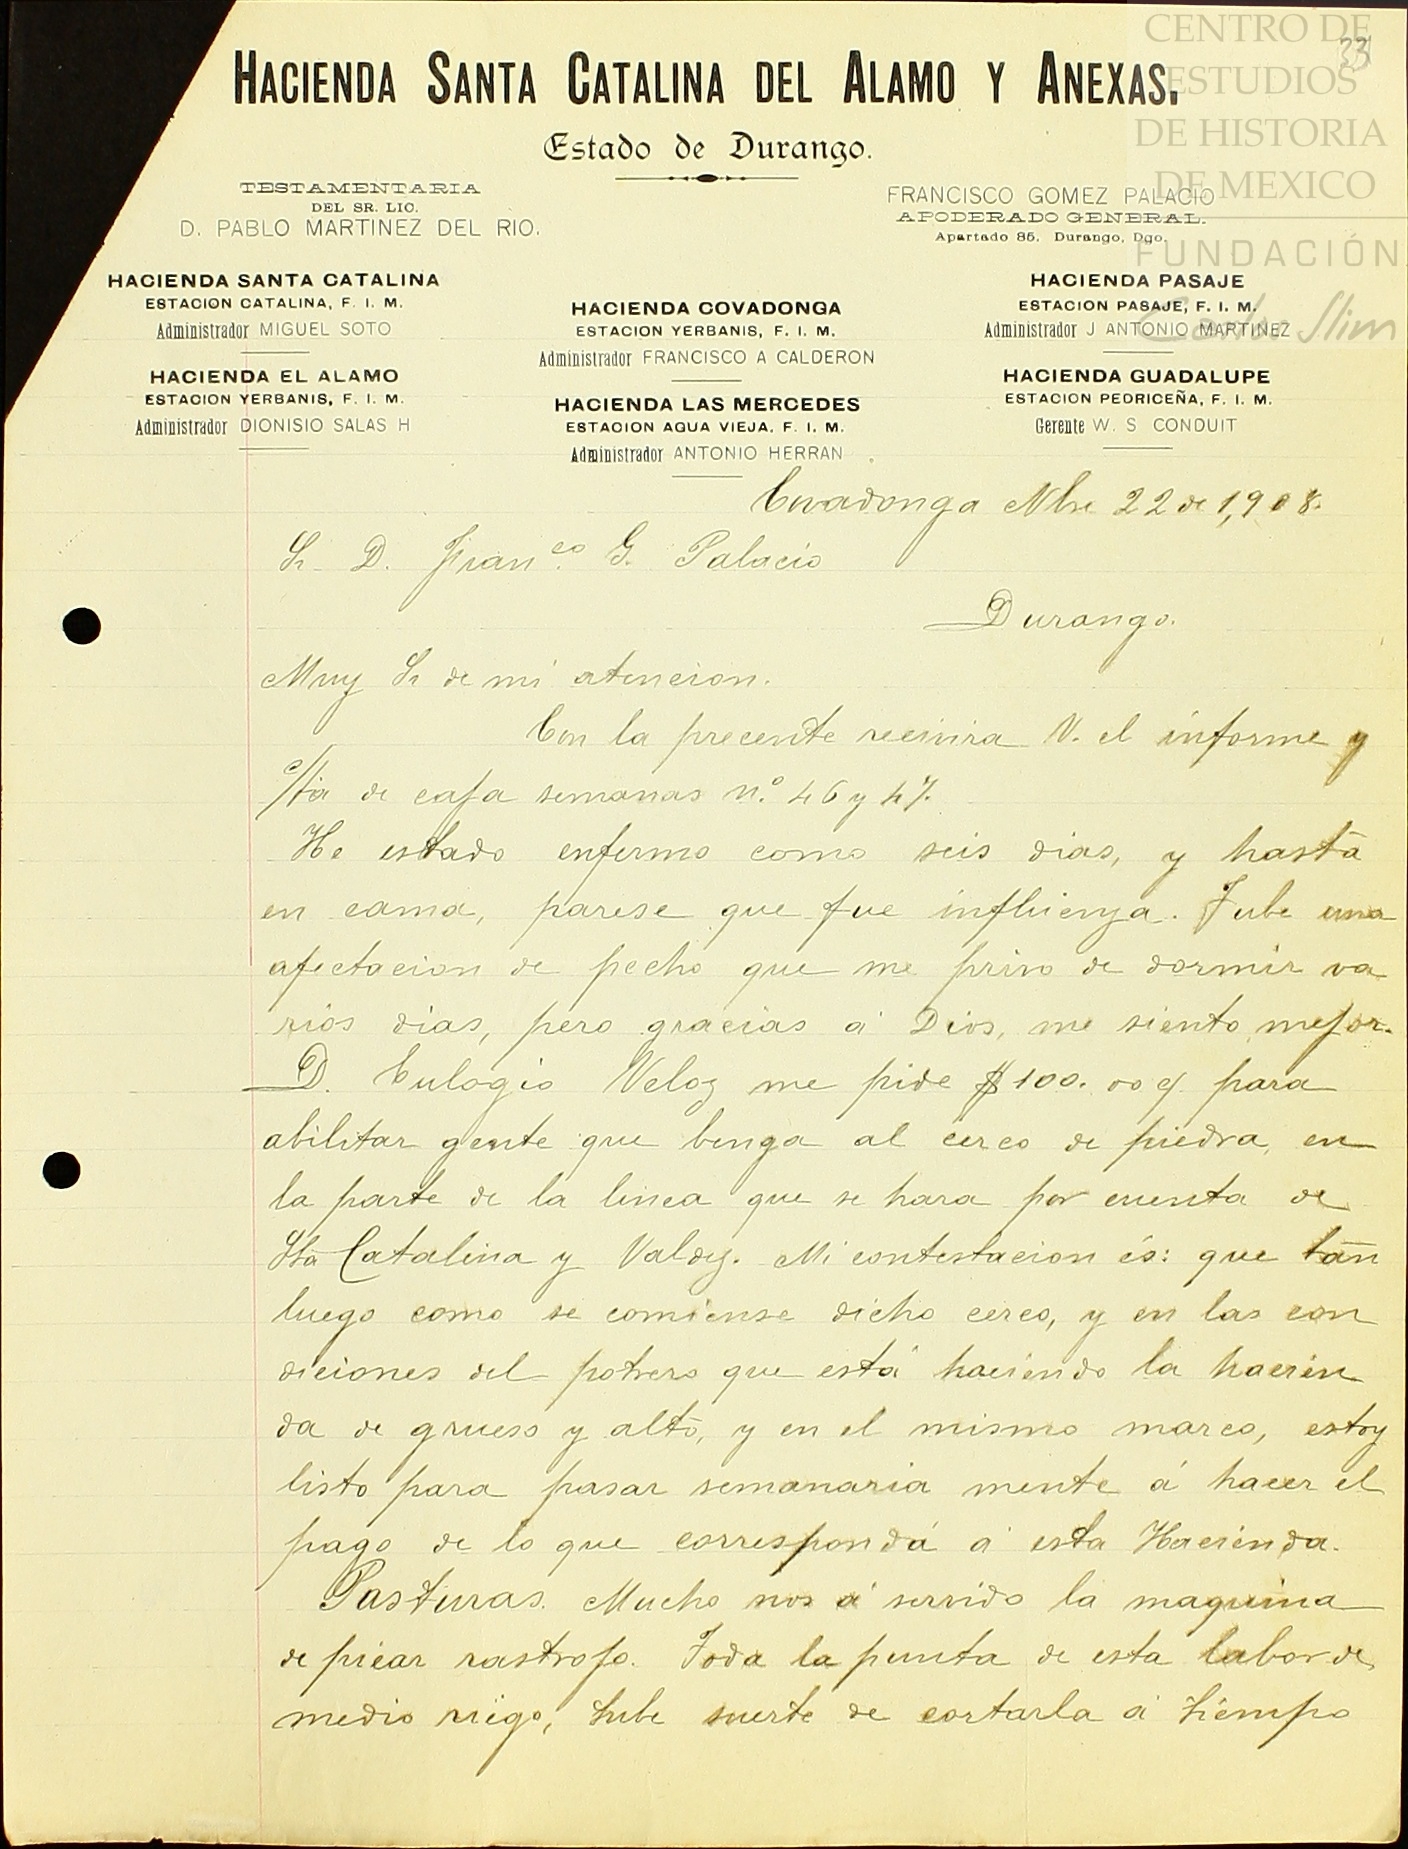 CENTRO DE
ESTUDIOS
DE HISTORIA
DE MEXICO
FUNDACIÓN
Carlos Slim
33
HACIENDA SANTA CATALINA DEL ALAMO Y ANEXAS.
Estado de Durango.
TESTAMENTARIA
DEL SR. LIC.
D. PABLO MARTINEZ DEL RIO.
FRANCISCO GOMEZ PALACIO
APODERADO GENERAL.
Apartado 85. Durango, Dgo.
HACIENDA SANTA CATALINA
ESTACION CATALINA, F. I. M.
Administrador MIGUEL SOTO
HACIENDA EL ALAMO
ESTACION YERBANIS, F. I. M.
Administrador DIONISIO SALAS H
HACIENDA COVADONGA
ESTACION YERBANIS, F. I. M.
Administrador FRANCISCO A CALDERON
HACIENDA LAS MERCEDES
ESTACION AGUA VIEJA. F. I. M.
Administrador ANTONIO HERRAN
HACIENDA PASAJE
ESTACION PASAJE, F. I. M.
Administrador J ANTONIO MARTINEZ
HACIENDA GUADALUPE
ESTACION PEDRICEÑA, F. I. M.
Gerente W. S CONDUIT
Covadonga Nbre 22 de 1,908.
Sr. D. Franco. G. Palacio
Durango.
Muy Sr de mi atencion.
Con la precente recivira V. el informe y
c/ta de caja semanas n.º 46 y 47.
He estado enfermo como seis dias, y hasta
en cama, parese que fue influenza. Tube una
afectacion de pecho que me privo de dormir va
rios dias, pero gracias á Dios, me siento mejor.
D. Eulogio Veloz me pide $100.00 c/ para
abilitar gente que benga al cerco de piedra, en
la parte de la linea que se hara por cuenta de
Sta Catalina y Valdez. Mi contestacion és: que tan
luego como se comiense dicho cerco, y en las con
diciones del potrero que está haciendo la hacien
da de grueso y alto, y en el mismo marco, estoy
listo para pasar semanaria mente á hacer el
pago de lo que correspondá á esta Hacienda.
Pasturas. Mucho nos á servido la maquina
de picar rastrojo. Toda la punta de esta labor de
medio riego, tube suerte de cortarla á tiempo